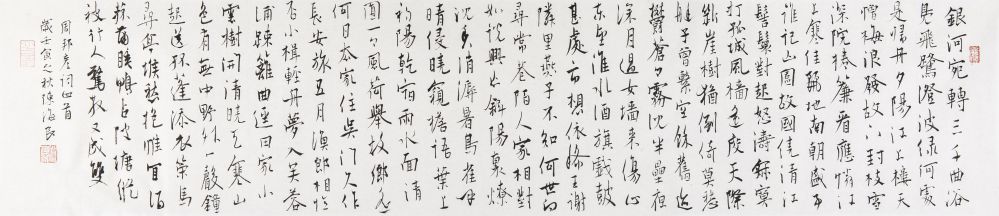 銀河宛轉三千曲浴
鳧飛鷺澄波綠何處
是歸舟夕陽江上樓天
憎梅浪發故下封枝雪
深院捲簾看應憐江
上寒佳麗地南朝盛事
誰記山圍故國繞清江
髻鬟對起怒濤寂寞
打孤城風檣遙度天際
斷崖樹猶倒倚莫愁
艇子曾繫空餘舊迹
鬱蒼蒼霧沉半壘夜
深月過女墻來傷心
東望淮水酒旗戲鼓
甚處市想依稀王謝
鄰里燕子不知何世向
尋常巷陌人家相對
如說興亡斜陽裏燎
沉香消溽暑鳥雀呼
晴侵曉窺檐語葉上
初陽乾宿雨水面清
圓一一風荷舉故鄉遙
何日去家住吳門久作
長安旅五月漁郎相憶
否小楫輕舟夢入芙蓉
浦疎籬曲徑田家小
雲樹開清曉天寒山
色有無中野外一聲鐘
起送孤蓬添衣策馬
尋亭堠愁抱惟宜酒
菰蒲睡鴨占陂塘縱
被行人驚散又成雙
周邦彥詞四首
歲壬寅之秋陳海良